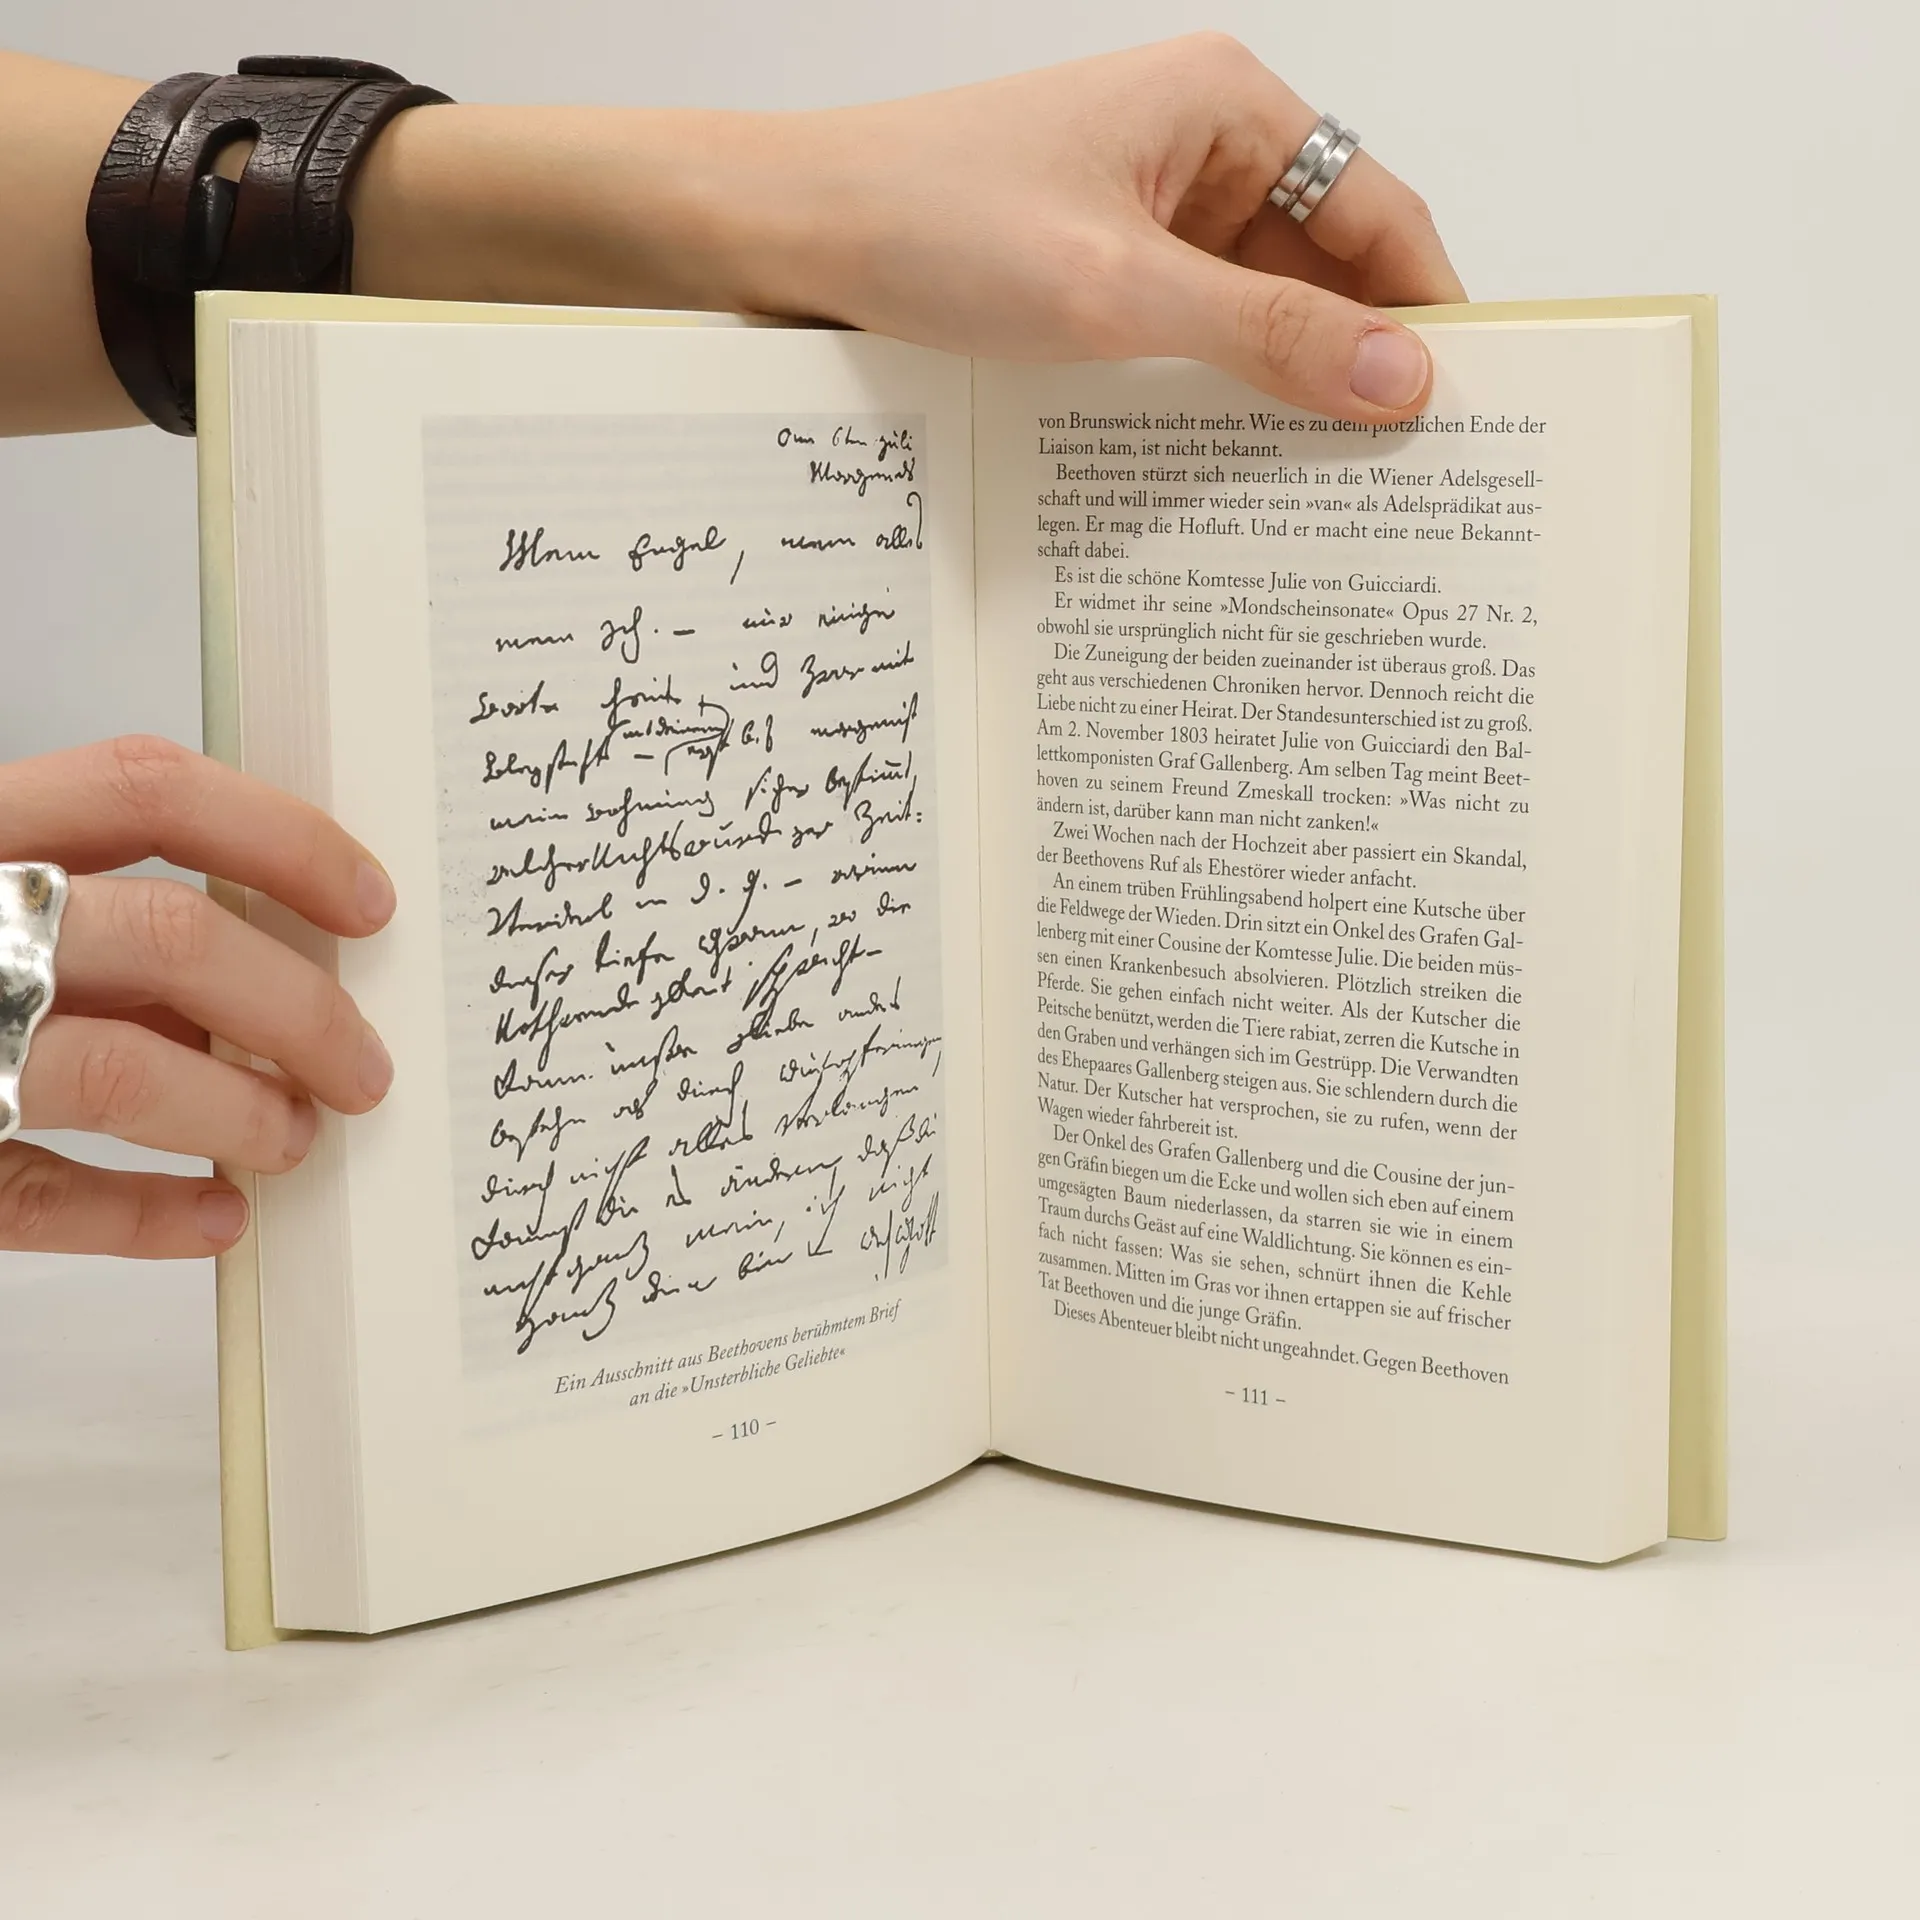 am 6ten juli
Morgends
Mein Engel, mein alles
mein Ich. — nur einige
Worte heute, und zwar mit
Bleystift — mit deinem erst b.s morgen ist
meine Wohnung sicher bestimmt,
welcher Nichtswürdiger Zeit-
Verderb in d. g. — warum
dieser tiefe Gram, wo die
Nothwendigkeit spricht —
Kann unsre Liebe anders
bestehn als durch Aufopferungen,
durch nicht alles verlangen,
kannst du es ändern, daß du
nicht ganz mein, ich nicht
ganz dein bin — ach Gott
Ein Ausschnitt aus Beethovens berühmtem Brief
an die »Unsterbliche Geliebte«
– 110 –
von Brunswick nicht mehr. Wie es zu dem plötzlichen Ende der
Liaison kam, ist nicht bekannt.
Beethoven stürzt sich neuerlich in die Wiener Adelsgesell-
schaft und will immer wieder sein »van« als Adelsprädikat aus-
legen. Er mag die Hofluft. Und er macht eine neue Bekannt-
schaft dabei.
Es ist die schöne Komtesse Julie von Guicciardi.
Er widmet ihr seine »Mondscheinsonate« Opus 27 Nr. 2,
obwohl sie ursprünglich nicht für sie geschrieben wurde.
Die Zuneigung der beiden zueinander ist überaus groß. Das
geht aus verschiedenen Chroniken hervor. Dennoch reicht die
Liebe nicht zu einer Heirat. Der Standesunterschied ist zu groß.
Am 2. November 1803 heiratet Julie von Guicciardi den Bal-
lettkomponisten Graf Gallenberg. Am selben Tag meint Beet-
hoven zu seinem Freund Zmeskall trocken: »Was nicht zu
ändern ist, darüber kann man nicht zanken!«
Zwei Wochen nach der Hochzeit aber passiert ein Skandal,
der Beethovens Ruf als Ehestörer wieder anfacht.
An einem trüben Frühlingsabend holpert eine Kutsche über
die Feldwege der Wieden. Drin sitzt ein Onkel des Grafen Gal-
lenberg mit einer Cousine der Komtesse Julie. Die beiden müs-
sen einen Krankenbesuch absolvieren. Plötzlich streiken die
Pferde. Sie gehen einfach nicht weiter. Als der Kutscher die
Peitsche benützt, werden die Tiere rabiat, zerren die Kutsche in
den Graben und verhängen sich im Gestrüpp. Die Verwandten
des Ehepaares Gallenberg steigen aus. Sie schlendern durch die
Natur. Der Kutscher hat versprochen, sie zu rufen, wenn der
Wagen wieder fahrbereit ist.
Der Onkel des Grafen Gallenberg und die Cousine der jun-
gen Gräfin biegen um die Ecke und wollen sich eben auf einem
umgesägten Baum niederlassen, da starren sie wie in einem
Traum durchs Geäst auf eine Waldlichtung. Sie können es ein-
fach nicht fassen: Was sie sehen, schnürt ihnen die Kehle
zusammen. Mitten im Gras vor ihnen ertappen sie auf frischer
Tat Beethoven und die junge Gräfin.
Dieses Abenteuer bleibt nicht ungeahndet. Gegen Beethoven
– 111 –